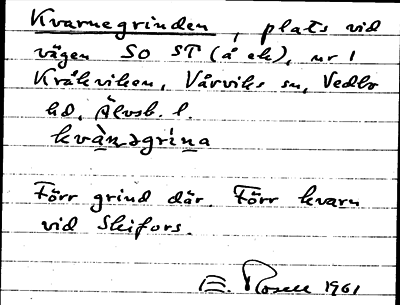 Kvarnegrinden, plats vid
vägen SO ST (å ek), nr 1
Kråkviken, Vårviks sn, Vedbo
hd, Älvsb. l.
kvànəgrína
Förr grind där. Förr kvarn
vid Skifors.
E. Rosell 1961